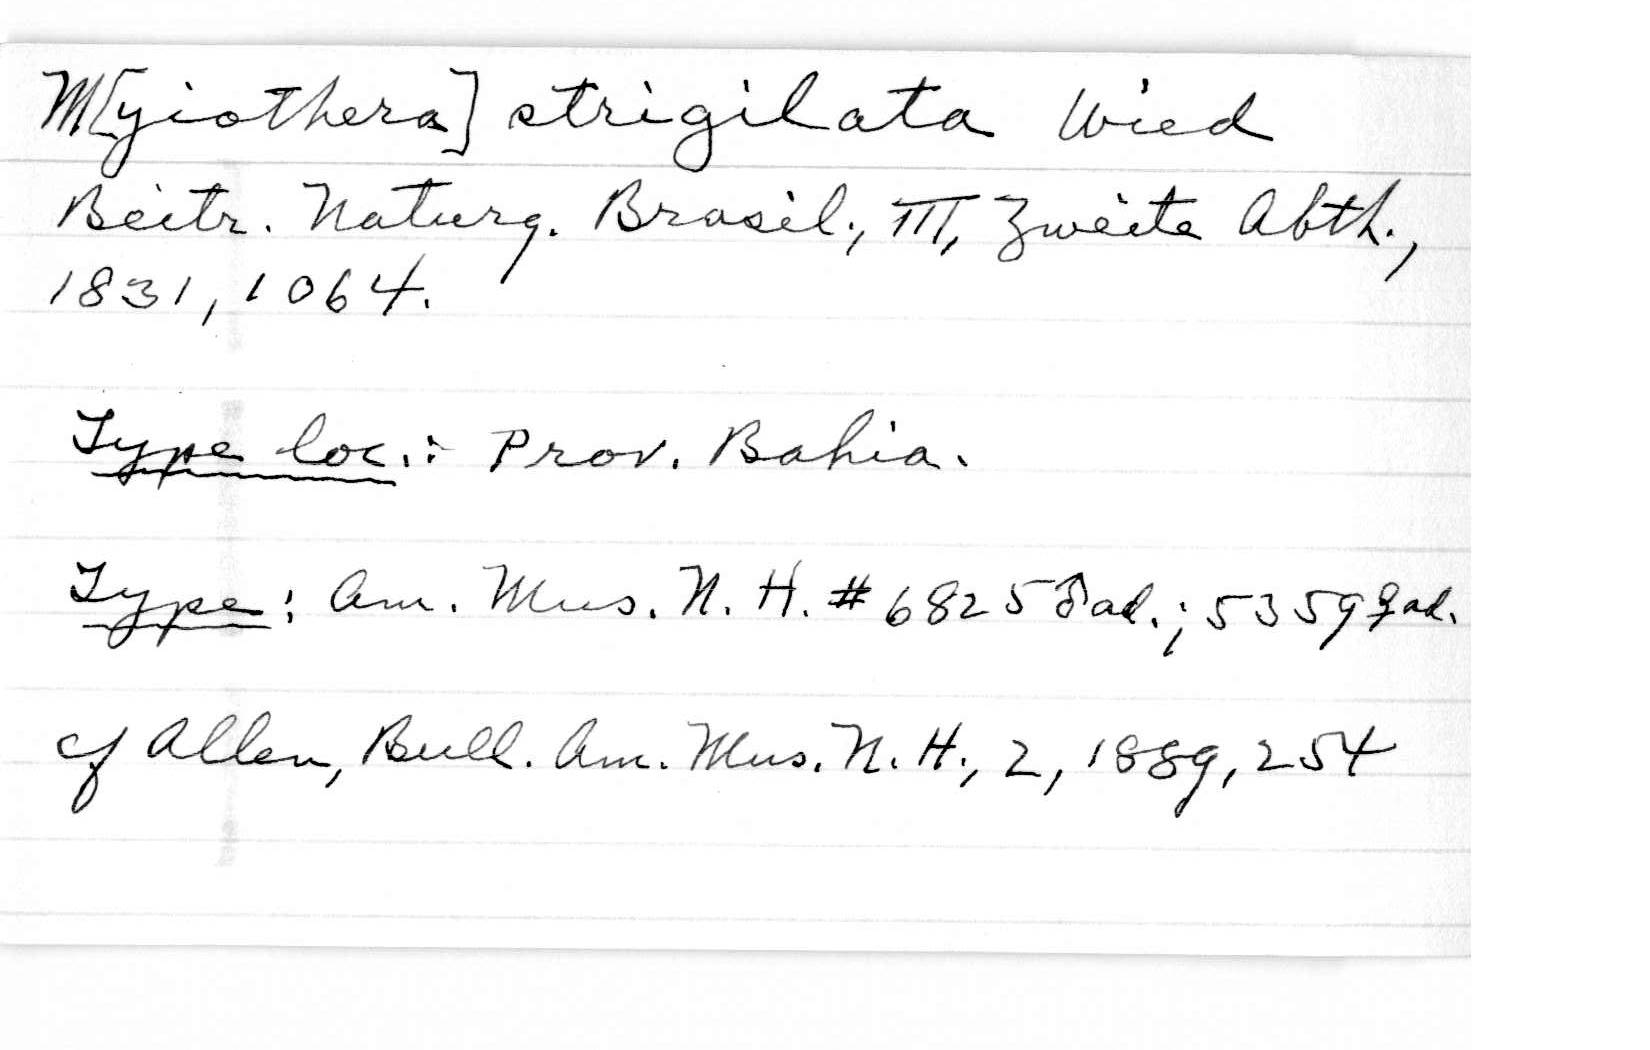 M[yiothera] strigilata Wied
Beitr. Naturg. Brasil., III, Zweite Abth.,
1831, 1064.
Type loc.: Prov. Bahia.
Type: Am. Mus. N. H. # 6825 ♂ ad.; 5359 ♀ ad.
cf Allen, Bull. Am. Mus. N. H., 2, 1889, 254